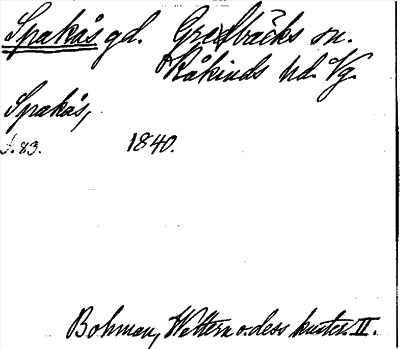 Spakås gd. Grefbäcks sn.
Kåkinds hd. Vg.
Spakås,
s. 83. 1840.
Bohman, Wettern o. dess kuster. II.